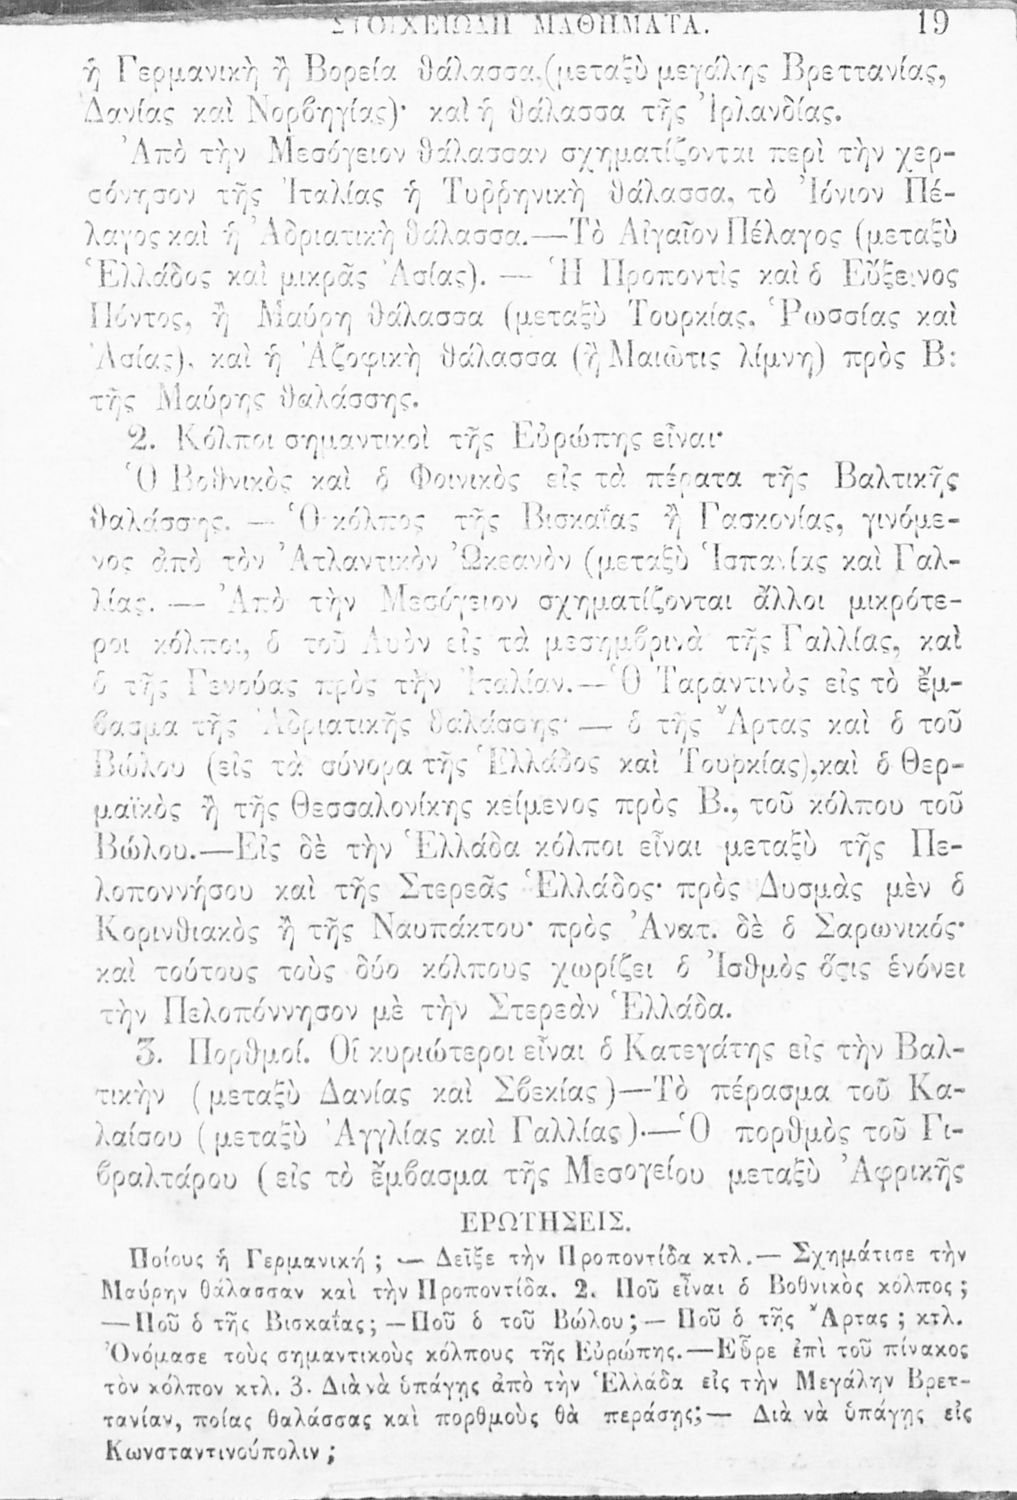 ΣΤΟΙΧΕΙΩΔΗ ΜΑΘΗΜΑΤΑ. 19
ἡ Γερμανικὴ ἢ Βορεία θάλασσα,(μεταξὺ μεγάλης Βρεττανίας,
Δανίας καὶ Νορβηγίας)· καὶ ἡ θάλασσα τῆς Ἰρλανδίας.
Ἀπὸ τὴν Μεσόγειον θάλασσαν σχηματίζονται περὶ τὴν χερ-
σόνησον τῆς Ἰταλίας ἡ Τυῤῥηνικὴ θάλασσα, τὸ Ἰόνιον Πέ-
λαγος καὶ ἡ Ἀδριατικὴ θάλασσα.—Τὸ Αἰγαῖον Πέλαγος (μεταξὺ
Ἑλλάδος καὶ μικρᾶς Ἀσίας). — Ἡ Προποντὶς καὶ ὁ Εὔξεινος
Πόντος, ἢ Μαύρη θάλασσα (μεταξὺ Τουρκίας, Ῥωσσίας καὶ
Ἀσίας), καὶ ἡ Ἀζοφικὴ θάλασσα (ἢ Μαιῶτις λίμνη) πρὸς Β:
τῆς Μαύρης θαλάσσης.
2. Κόλποι σημαντικοὶ τῆς Εὐρώπης εἶναι·
Ὁ Βοθνικὸς καὶ ὁ Φοινικὸς εἰς τὰ πέρατα τῆς Βαλτικῆς
θαλάσσης. — Ὁ κόλπος τῆς Βισκαΐας ἢ Γασκονίας, γινόμε-
νος ἀπὸ τὸν Ἀτλαντικὸν Ὠκεανὸν (μεταξὺ Ἱσπανίας καὶ Γαλ-
λίας. — Ἀπὸ τὴν Μεσόγειον σχηματίζονται ἄλλοι μικρότε-
ροι κόλποι, ὁ τοῦ Λυὸν εἰς τὰ μεσημβρινὰ τῆς Γαλλίας, καὶ
ὁ τῆς Γενούας πρὸς τὴν Ἰταλίαν.—Ὁ Ταραντινὸς εἰς τὸ ἔμ-
βασμα τῆς Ἀδριατικῆς θαλάσσης· — ὁ τῆς Ἄρτας καὶ ὁ τοῦ
Βώλου (εἰς τὰ σύνορα τῆς Ἑλλάδος καὶ Τουρκίας),καὶ ὁ Θερ-
μαϊκὸς ἢ τῆς Θεσσαλονίκης κείμενος πρὸς Β., τοῦ κόλπου τοῦ
Βώλου.—Εἰς δὲ τὴν Ἑλλάδα κόλποι εἶναι μεταξὺ τῆς Πε-
λοποννήσου καὶ τῆς Στερεᾶς Ἑλλάδος· πρὸς Δυσμὰς μὲν ὁ
Κορινθιακὸς ἢ τῆς Ναυπάκτου· πρὸς Ἀνατ. δὲ ὁ Σαρωνικός·
καὶ τούτους τοὺς δύο κόλπους χωρίζει ὁ Ἰσθμὸς ὅςις ἑνόνει
τὴν Πελοπόννησον μὲ τὴν Στερεὰν Ἑλλάδα.
3. Πορθμοί. Οἱ κυριώτεροι εἶναι ὁ Κατεγάτης εἰς τὴν Βαλ-
τικὴν (μεταξὺ Δανίας καὶ Σβεκίας)—Τὸ πέρασμα τοῦ Κα-
λαίσου (μεταξὺ Ἀγγλίας καὶ Γαλλίας).—Ὁ πορθμὸς τοῦ Γι-
βραλτάρου (εἰς τὸ ἔμβασμα τῆς Μεσογείου μεταξὺ Ἀφρικῆς
ΕΡΩΤΗΣΕΙΣ.
Ποίους ἡ Γερμανική; — Δεῖξε τὴν Προποντίδα κτλ.— Σχημάτισε τὴν
Μαύρην θάλασσαν καὶ τὴν Προποντίδα. 2. Ποῦ εἶναι ὁ Βοθνικὸς κόλπος;
—Ποῦ ὁ τῆς Βισκαΐας;—Ποῦ ὁ τοῦ Βώλου;— Ποῦ ὁ τῆς Ἄρτας; κτλ.
Ὀνόμασε τοὺς σημαντικοὺς κόλπους τῆς Εὐρώπης.—Εὗρε ἐπὶ τοῦ πίνακος
τὸν κόλπον κτλ. 3. Διὰ νὰ ὑπάγῃς ἀπὸ τὴν Ἑλλάδα εἰς τὴν Μεγάλην Βρετ-
τανίαν, ποίας θαλάσσας καὶ πορθμοὺς θὰ περάσῃς;— Διὰ νὰ ὑπάγῃς εἰς
Κωνσταντινούπολιν;